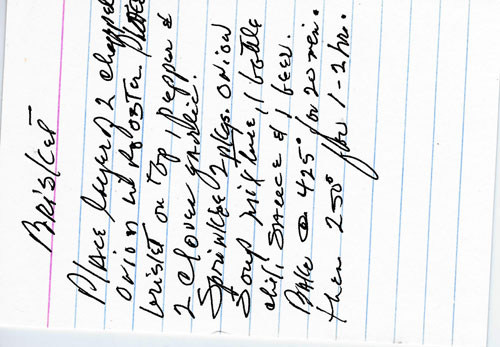 Brisket
Place layer of 2 chopped
onion in roaster. Place
brisket on top, pepper &
2 cloves garlic.
Sprinkle 2 pkgs. onion
soup mixture, 1 bottle
chili sauce & 1 beer.
Bake @ 425° for 20 min.
then 250° for 1-2 hrs.